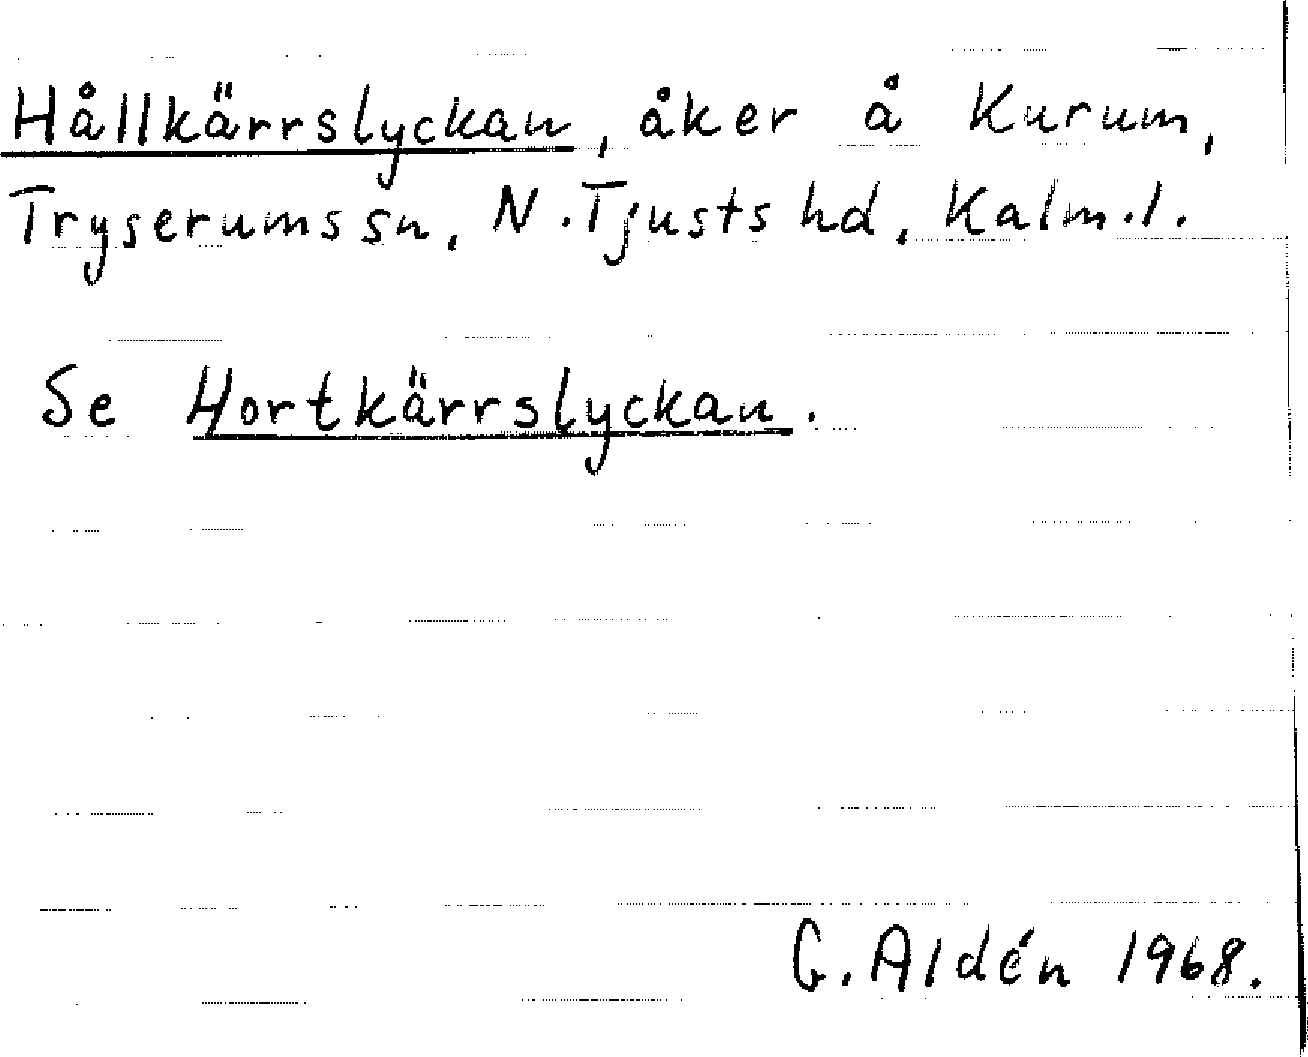 Hållkärrslyckan, åker å Kurum,
Tryserums sn, N. Tjusts hd, Kalm. l.
Se Hortkärrslyckan.
G. Aldén 1968.